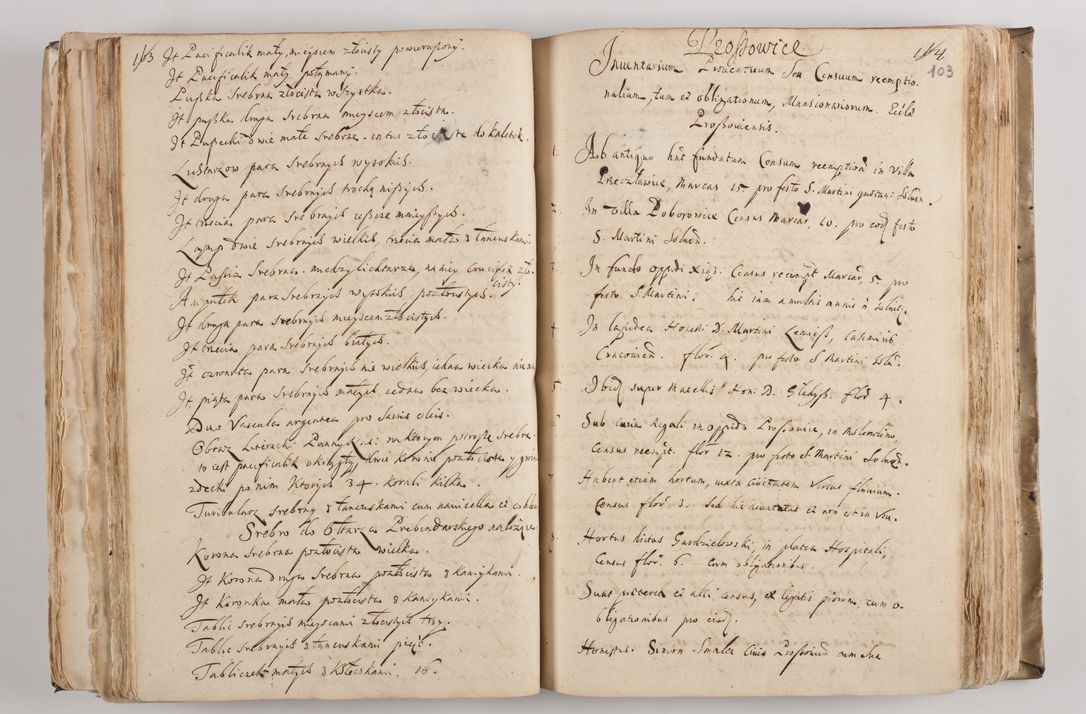 163 Jt Pacificalik mały, miejscem złocisty powierzchny.
Jt Pacificalik mały połamany.
Puszka Srebrna złocista wszystka.
Jt puszka druga Srebrna miejscem złocista.
Jt Pupecki dwie małe Srebrne intus złociste do
Lichtarzow para Srebrnych wysokich.
Jt druga para Srebrnych trochą niższych.
Jt trzecia para Srebrnych ieszcze mnieyszych.
Lamp dwie Srebrnych wielkich, trzecia mała z łancuszkami
Jt Passia Srebrna miedzy lichtarze, na niey Crucifix zło-
cisty.
Ampułek para Srebrnych wysokich pozłocistych.
Jt druga para Srebrnych miejscem złocistych.
Jt trzecia para Srebrnych białych.
Jt czwarta para Srebrnych nie wielkich, iedna wieczka nie ma
Jt piąta para Srebrnych małych iedna bez wieczka.
Duo Vascula argentea pro Sacris oleis.
Obraz Panny na ktorym Srebra
to iest pacificalik okrągły, dwie koronie pozłociste y gwia
zdeczki po nim ktorych 34. korali kilka.
Turibularz srebrny z łancuszkami cum navicella et
Srebro do Ołtarza Prebendarskiego należące
Korona Srebrna pozłocista wielka.
Jt Korona druga Srebrna pozłocista z kamykami.
Jt Koronka mała pozłocista z kamykami.
Tablic Srebrnych miejscami złocistych trzy.
Tablic srebrnych z łancuszkami pięć.
Tabliczek małych z kołeczkami. 16.
Proszowice
164
103
Inventarium Proventuum Seu Censuum reemptio-
nalium, tum et obligationum, Mansionariorum Eccla
Proszoviensis.
1. Ab antiquo hnt fundatum Censum reemption in Villa
Przezławice, Marcas 15 pro festo S. Martini quotan: Solven.
2. In Villa Boborowice Census Marcar. 10. pro eod festo
S. Martini Solven.
3. In fundo oppidi Xiąz. Census reempt Marcar. 5. pro
festo S. Martini. hic iam a multis annis n Solvit.
4. In lapidea Honesti D. Martini Casimiriae
Cracovien. flor. 4. pro festo S Martini Solv.
5. Ibid super Hon: D. flor 4.
6. Sub curia Regali in oppido Proszovice, in Molendino,
Census reempt. flor 12. pro festo S. Martini Solven.
7. Habent etiam hortum, iuxta Civitatem Versus fluvium.
Census flor 3. Sed hic et non est in Usu.
8. Hortus dictus Gardzielowski, in platea Hospitali,
Census flor. 6. Cum obligationibus.
Sunt praeterea et alii census, ex legatis piorum, cum o-
bligationibus pro eisd.
Honestus. Simon Civis Proszovien cum Sua